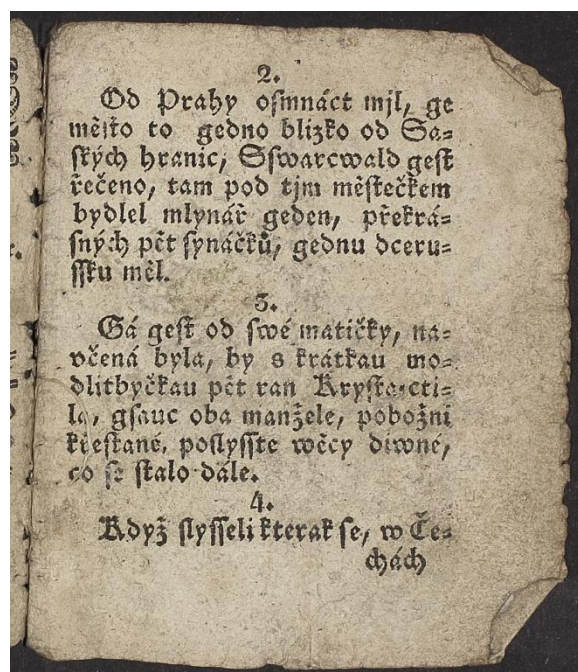 2.
Od Prahy osmnáct mjl, ge
město to gedno bljzko od Sa=
ských hranic, Sswarcwald gest
řečeno, tam pod tjm městečkem
bydlel mlynář geden, překrá=
sných pět synáčků, gednu dceru=
ssku měl.
3.
Gá gest od swé matičky, na=
včená byla, by s krátkau mo=
dlitbyčkau pět ran Krysta cti=
la, gsauc oba manžele, pobožnj
křestané, poslysste wěcy diwné,
co se stalo dále.
4.
Když slysseli kterak se, w Če=
chách